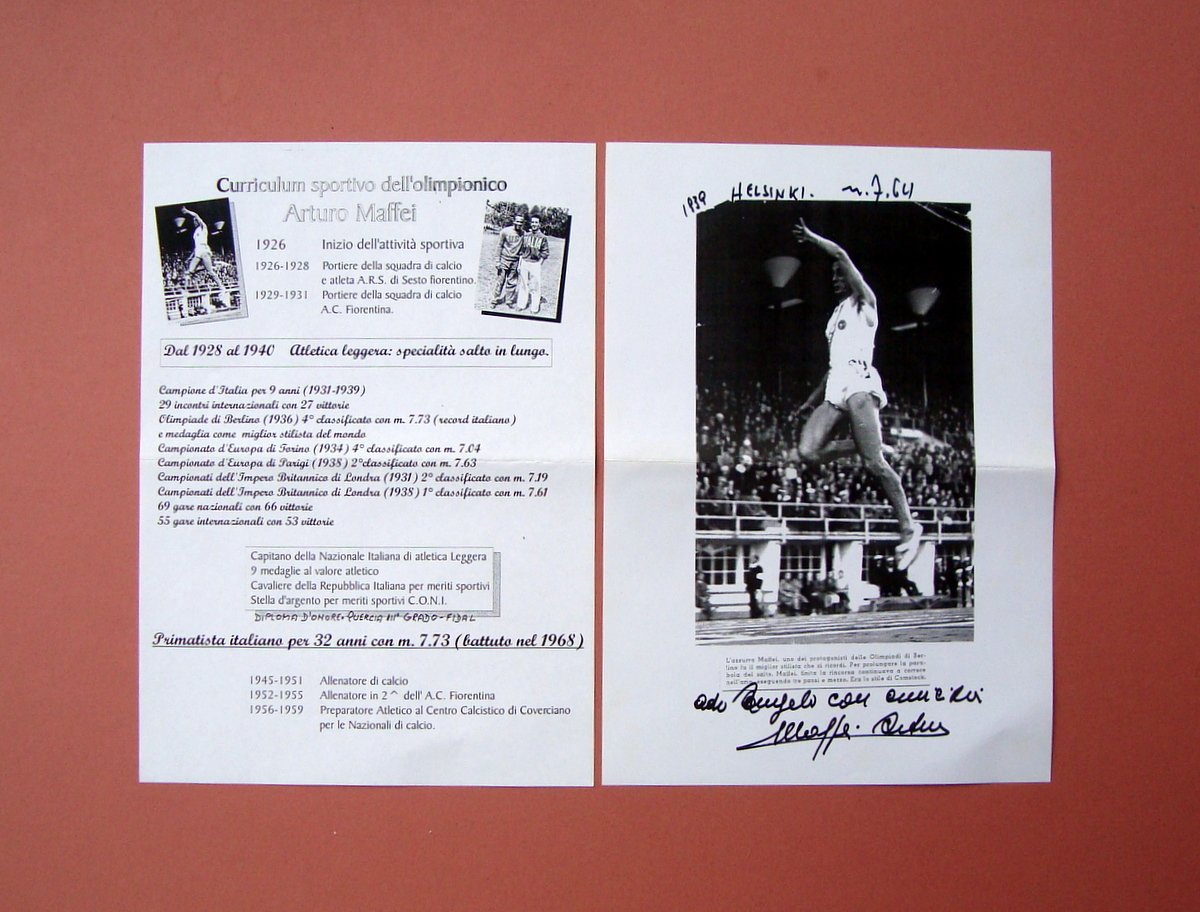 Curriculum sportivo dell'olimpionico
Arturo Maffei
1926 Inizio dell'attività sportiva
1926-1928 Portiere della squadra di calcio
e atleta A.R.S. di Sesto fiorentino.
1929-1931 Portiere della squadra di calcio
A.C. Fiorentina.
Dal 1928 al 1940 Atletica leggera: specialità salto in lungo.
Campione d'Italia per 9 anni (1931-1939)
29 incontri internazionali con 27 vittorie
Olimpiade di Berlino (1936) 4° classificato con m. 7.73 (record italiano)
e medaglia come miglior stilista del mondo
Campionato d'Europa di Torino (1934) 4° classificato con m. 7.04
Campionato d'Europa di Parigi (1938) 2°classificato con m. 7.63
Campionati dell'Impero Britannico di Londra (1931) 2° classificato con m. 7.19
Campionati dell'Impero Britannico di Londra (1938) 1° classificato con m. 7.61
69 gare nazionali con 66 vittorie
55 gare internazionali con 53 vittorie
Capitano della Nazionale Italiana di atletica Leggera
9 medaglie al valore atletico
Cavaliere della Repubblica Italiana per meriti sportivi
Stella d'argento per meriti sportivi C.O.N.I.
DIPLOMA D'ONORE-QUERCIA III° GRADO-FIDAL
Primatista italiano per 32 anni con m. 7.73 (battuto nel 1968)
1945-1951 Allenatore di calcio
1952-1955 Allenatore in 2^ dell' A.C. Fiorentina
1956-1959 Preparatore Atletico al Centro Calcistico di Coverciano
per le Nazionali di calcio.
1939 HELSINKI. m. 7.64
L'azzurro Maffei, uno dei protagonisti delle Olimpiadi di Ber-
lino fu il miglior stilista che si ricordi. Per prolungare la para-
bola del salto, Maffei, finita la rincorsa continuava a correre
nell'aria eseguendo tre passi e mezzo. Era lo stile di Comstock.
ad Angelo con amicizia
Maffei Arturo